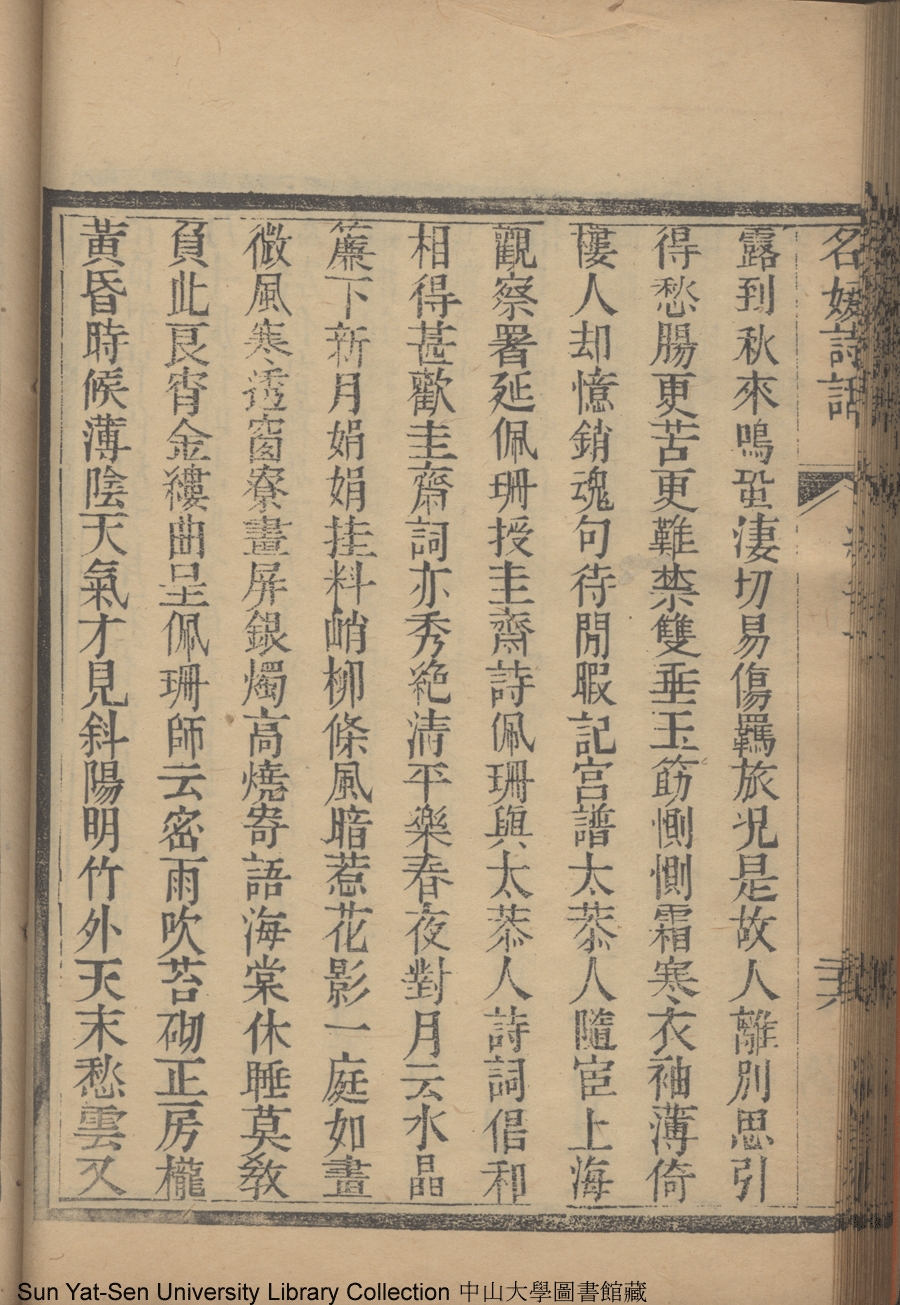 名媛詩話
露到秋來鳴蛩淒切易傷羈旅况是故人離別思引
得愁腸更苦更難禁雙垂玉筯惻惻霜寒衣袖薄倚
樓人却憶銷魂句待閒暇記宫譜太恭人隨宦上海
觀察署延佩珊授圭齋詩佩珊與太恭人詩詞倡和
相得甚歡圭齋詞亦秀絶清平樂春夜對月云水晶
簾下新月娟娟挂料峭柳條風暗惹花影一庭如畫
微風寒透窗寮畫屏銀燭高燒寄語海棠休睡莫敎
負此良宵金縷曲呈佩珊師云密雨吹苔砌正房櫳
黃昏時候薄陰天氣才見斜陽明竹外天末愁雲又
Sun Yat-Sen University Library Collection 中山大學圖書館藏